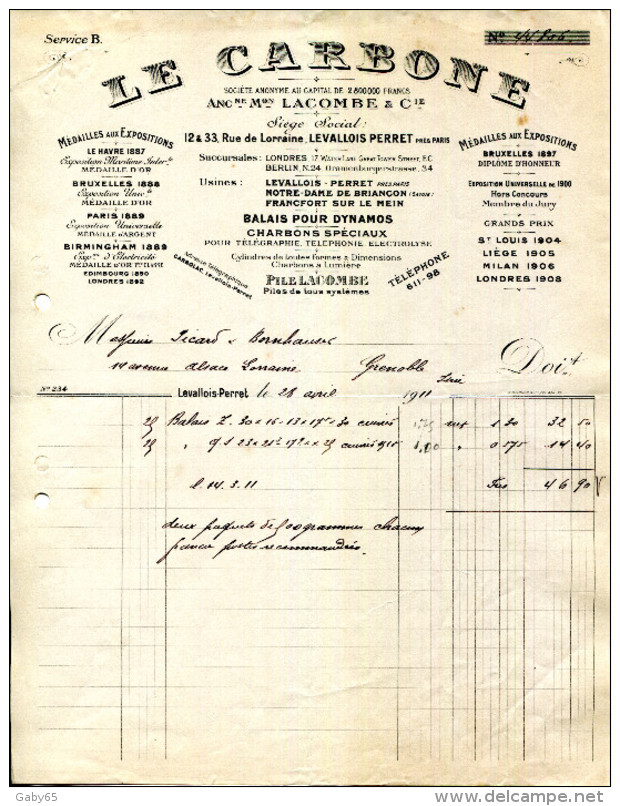 Service B.
Nº
LE CARBONE
SOCIÉTÉ ANONYME AU CAPITAL DE 2 800000 FRANCS
ANCNE MON LACOMBE & CIE
Siège Social:
12 & 33, Rue de Lorraine, LEVALLOIS PERRET PRÈS PARIS
Succursales: LONDRES, 17, WATER LANE GREAT TOWER STREET, E.C.
BERLIN, N.24, Oranienburgerstrasse, 34
Usines: LEVALLOIS-PERRET PRÈS PARIS
NOTRE-DAME DE BRIANÇON (SAVOIE)
FRANCFORT SUR LE MEIN
BALAIS POUR DYNAMOS
CHARBONS SPÉCIAUX
POUR TÉLÉGRAPHIE, TÉLÉPHONIE, ELECTROLYSE
Cylindres de toutes formes & Dimensions
Charbons à Lumière
PILE LACOMBE
Piles de tous systèmes
MÉDAILLES AUX EXPOSITIONS
LE HAVRE 1887
Exposition Maritime Interle
MÉDAILLE D'OR
BRUXELLES 1888
Exposition Univlle
MÉDAILLE D'OR
PARIS 1889
Exposition Universelle
MÉDAILLE D'ARGENT
BIRMINGHAM 1889
Expon d'Électricité
MÉDAILLE D'OR 1re CLASSE
EDIMBOURG 1890
LONDRES 1892
MÉDAILLES AUX EXPOSITIONS
BRUXELLES 1897
DIPLÔME D'HONNEUR
EXPOSITION UNIVERSELLE DE 1900
Hors Concours
Membre du Jury
GRANDS PRIX
ST LOUIS 1904
LIÈGE 1905
MILAN 1906
LONDRES 1908
Adresse Télégraphique
CARBOLAC, Levallois-Perret
TÉLÉPHONE
511-98
Messieurs Picard & Bornhauser
avenue Alsace Lorraine Grenoble
Isère
Doit
Nº 234
Levallois-Perret, le 28 avril 1911
25 Balais Z. 30 x 16 - 13 x 17 x 30 cuivrés 1,30 32 50
25 " 0 575 14 40
l. 14.3.11 Frcs 46 90
deux paquets de 500 grammes chacun
franco postes recommandés.
Gaby65
www.delcampe.net